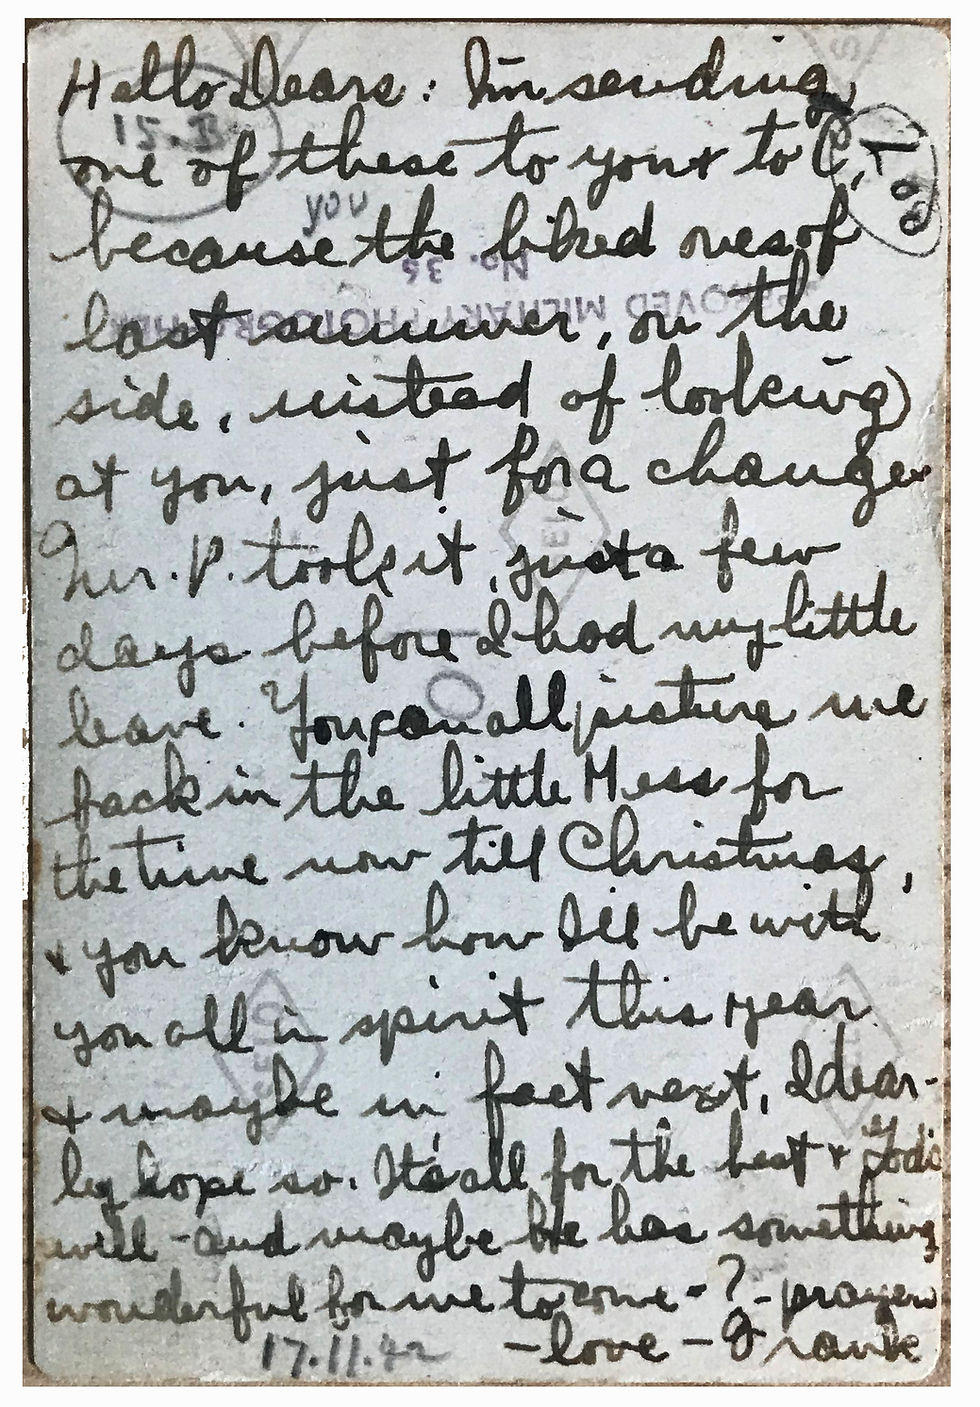 Hello Dears: I'm sending
15.II
one of these to you & to C,
you
because the liked ones of
No. 35
APPROVED MILITARY PHOTOGRAPHER
last summer, on the
side, instead of looking
at you, just for a change.
Mr. P. took it, just a few
days before I had my little
leave. You can all picture me
back in the little Mess for
the time now till Christmas,
& you know how I'll be with
you all in spirit this year
& maybe in fact next, I dear-
ly hope so. It's all for the best & God's
will - and maybe He has something
wonderful for me to come - ? - prayers
- love - Frank
17.11.42